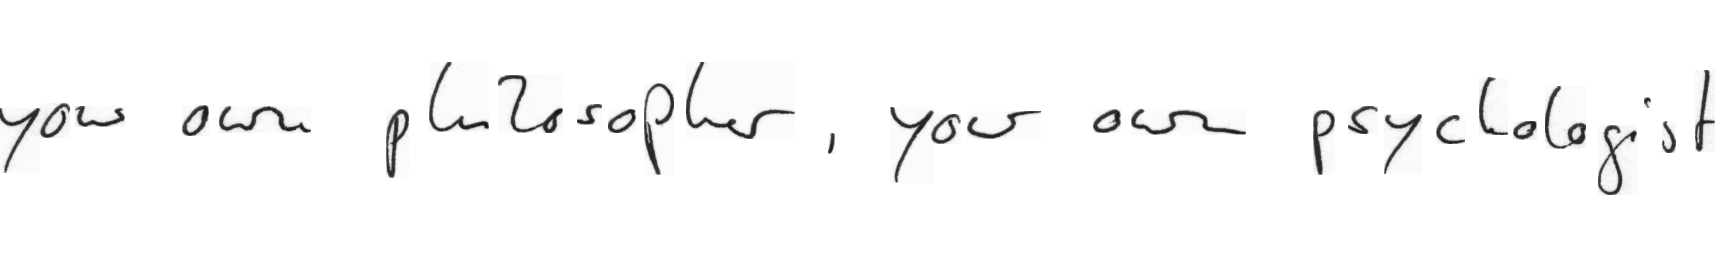 your own philosopher, your own psychologist